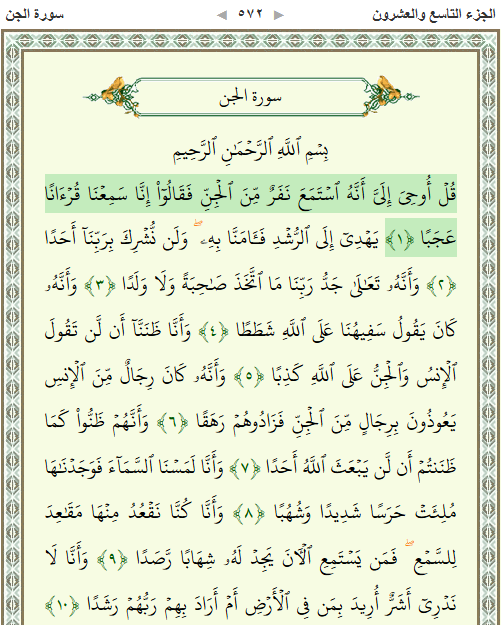 الجزء التاسع والعشرون ◄ ٥٧٢ ► سورة الجن
سورة الجن
بِسْمِ ٱللَّهِ ٱلرَّحْمَٰنِ ٱلرَّحِيمِ
قُلْ أُوحِىَ إِلَىَّ أَنَّهُ ٱسْتَمَعَ نَفَرٌ مِّنَ ٱلْجِنِّ فَقَالُوٓا۟ إِنَّا سَمِعْنَا قُرْءَانًا
عَجَبًا ﴿١﴾ يَهْدِىٓ إِلَى ٱلرُّشْدِ فَـَٔامَنَّا بِهِۦ ۖ وَلَن نُّشْرِكَ بِرَبِّنَآ أَحَدًا
﴿٢﴾ وَأَنَّهُۥ تَعَٰلَىٰ جَدُّ رَبِّنَا مَا ٱتَّخَذَ صَٰحِبَةً وَلَا وَلَدًا ﴿٣﴾ وَأَنَّهُۥ
كَانَ يَقُولُ سَفِيهُنَا عَلَى ٱللَّهِ شَطَطًا ﴿٤﴾ وَأَنَّا ظَنَنَّآ أَن لَّن تَقُولَ
ٱلْإِنسُ وَٱلْجِنُّ عَلَى ٱللَّهِ كَذِبًا ﴿٥﴾ وَأَنَّهُۥ كَانَ رِجَالٌ مِّنَ ٱلْإِنسِ
يَعُوذُونَ بِرِجَالٍ مِّنَ ٱلْجِنِّ فَزَادُوهُمْ رَهَقًا ﴿٦﴾ وَأَنَّهُمْ ظَنُّوا۟ كَمَا
ظَنَنتُمْ أَن لَّن يَبْعَثَ ٱللَّهُ أَحَدًا ﴿٧﴾ وَأَنَّا لَمَسْنَا ٱلسَّمَآءَ فَوَجَدْنَٰهَا
مُلِئَتْ حَرَسًا شَدِيدًا وَشُهُبًا ﴿٨﴾ وَأَنَّا كُنَّا نَقْعُدُ مِنْهَا مَقَٰعِدَ
لِلسَّمْعِ ۖ فَمَن يَسْتَمِعِ ٱلْـَٔانَ يَجِدْ لَهُۥ شِهَابًا رَّصَدًا ﴿٩﴾ وَأَنَّا لَا
نَدْرِىٓ أَشَرٌّ أُرِيدَ بِمَن فِى ٱلْأَرْضِ أَمْ أَرَادَ بِهِمْ رَبُّهُمْ رَشَدًا ﴿١٠﴾